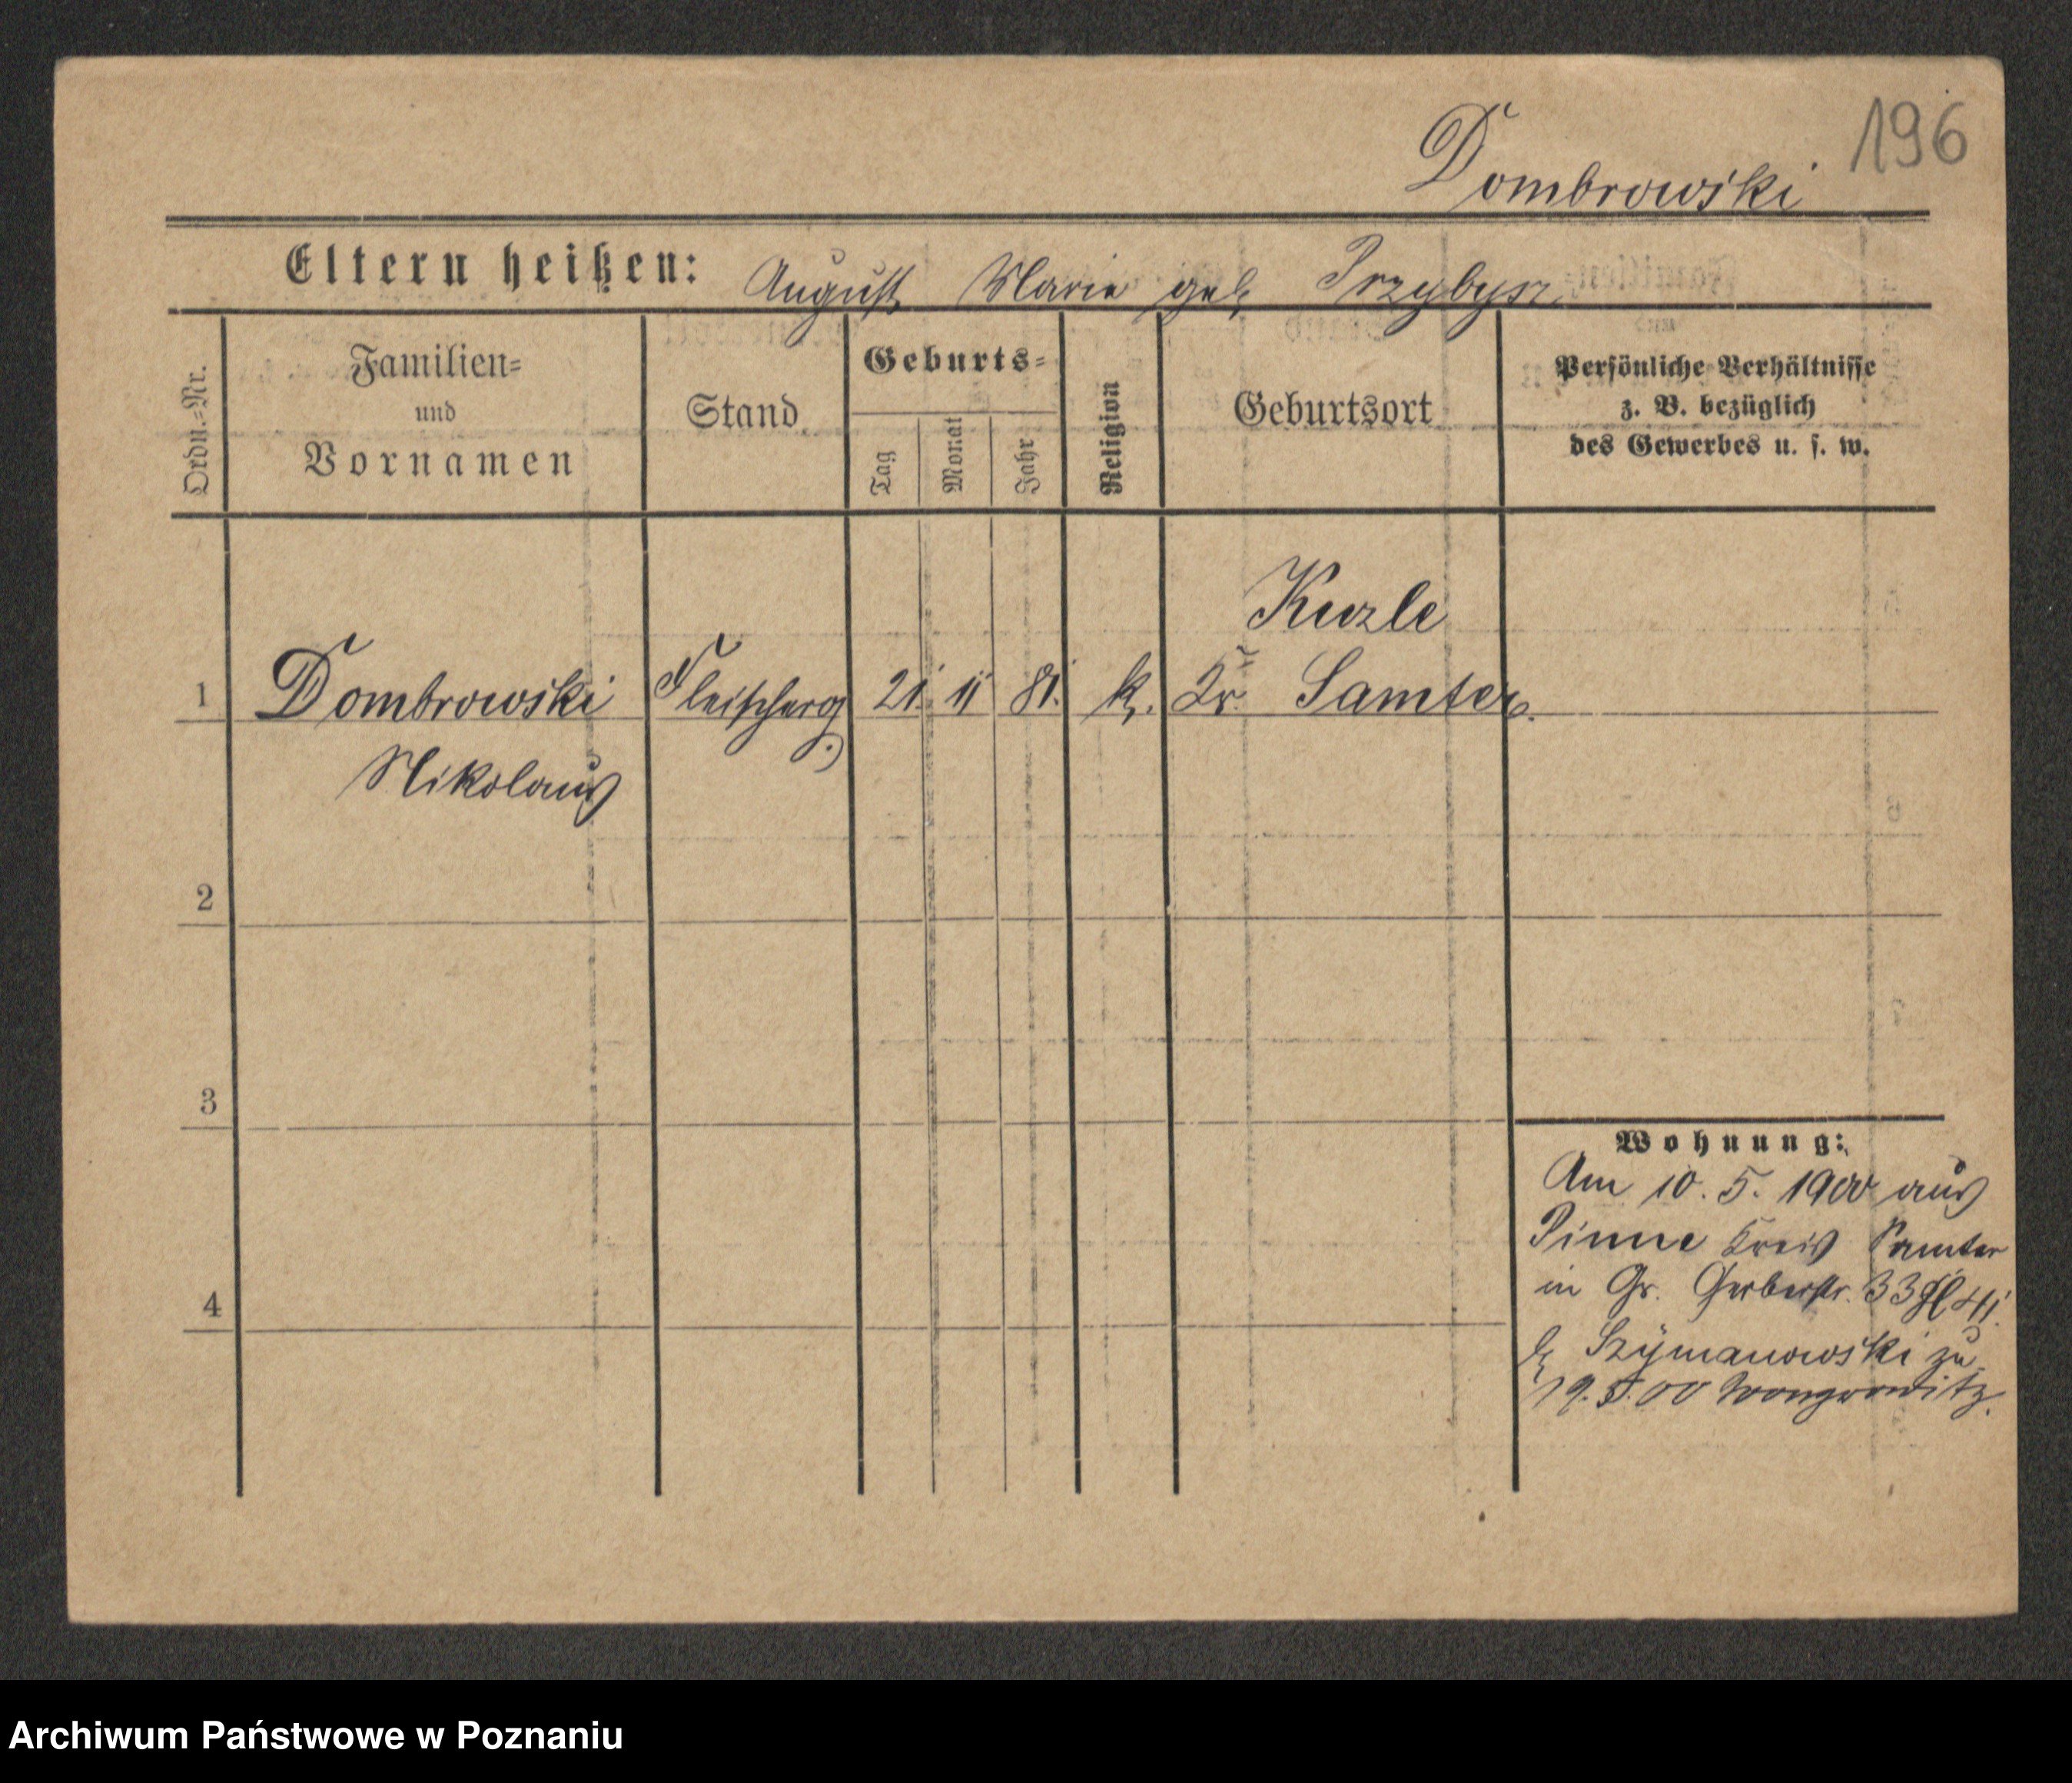 196
Dombrowski
Eltern heißen: August Marie geb. Przybysz
Ordn.=Nr.
Familien=
und
Vornamen
Stand
Geburts=
Tag
Monat
Jahr
Religion
Geburtsort
Persönliche Verhältnisse
z. B. bezüglich
des Gewerbes u. s. w.
Kuzle
1 Dombrowski Fleischerg. 21. 11 81. k. Kr. Samter.
Nikolaus
2
3
4
Wohnung:
Am 10. 5. 1900 aus
Pinne Kreis Samter
in Gr. Gerberstr. 33
b. Szymanowski zu
19.5.00 Wongrowitz.
Archiwum Państwowe w Poznaniu